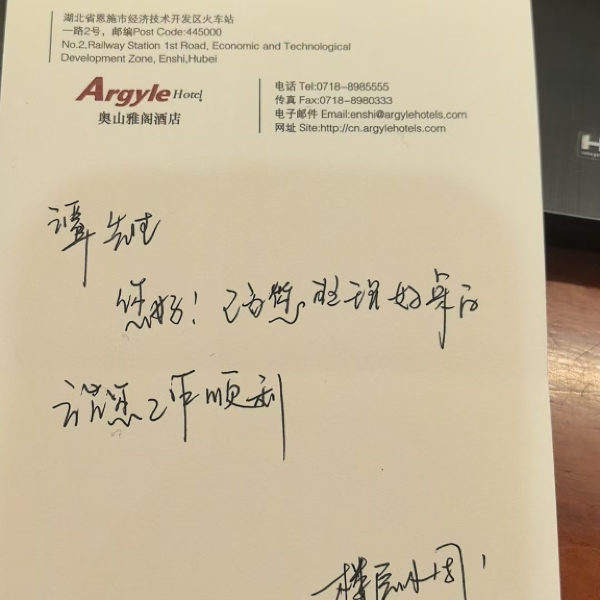 湖北省恩施市经济技术开发区火车站
一路2号，邮编Post Code:445000
No.2,Railway Station 1st Road, Economic and Technological
Development Zone, Enshi,Hubei
Argyle Hotel
奥山雅阁酒店
电话 Tel:0718-8985555
传真 Fax:0718-8980333
电子邮件 Email:enshi@argylehotels.com
网址 Site:http://cn.argylehotels.com
谭先生
您好！已为您整理好桌面
祝您工作顺利
楼层